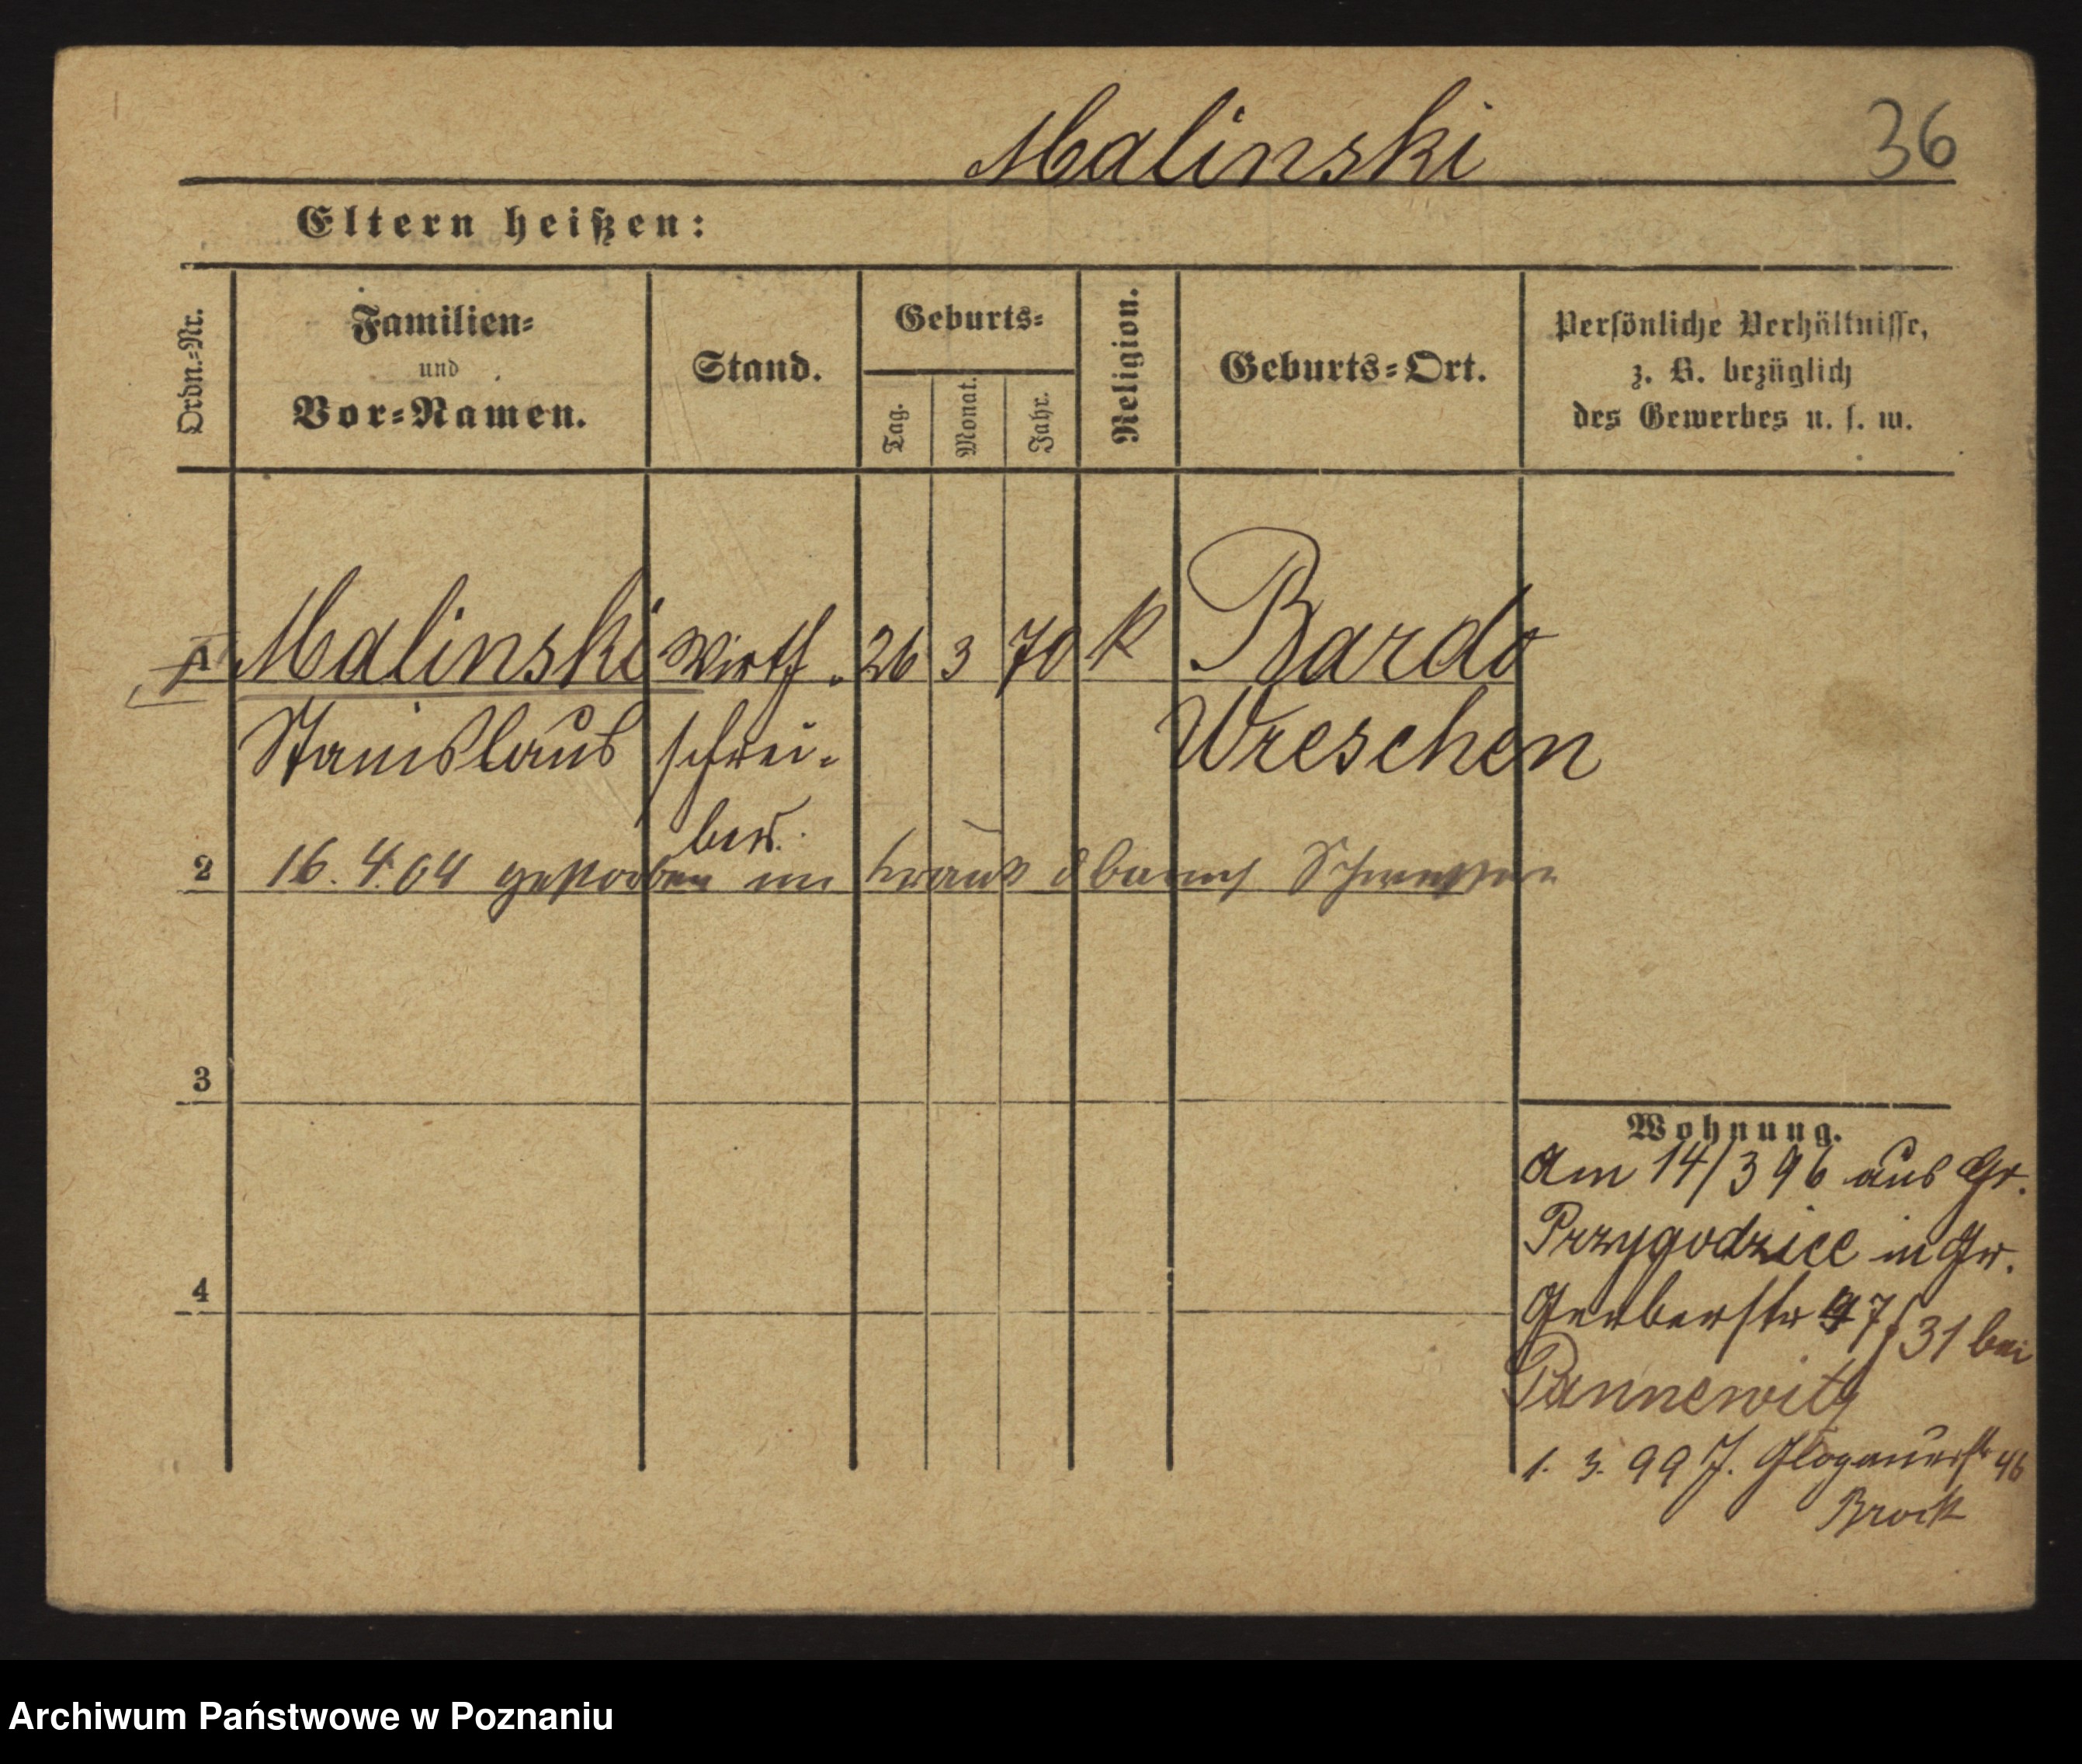 Malinski
36
Eltern heißen:
Ordn.=Nr.
Familien=
und
Vor=Namen.
Stand.
Geburts=
Tag.
Monat.
Jahr.
Religion.
Geburts=Ort.
Persönliche Verhältnisse,
z. B. bezüglich
des Gewerbes u. s. w.
1 Malinski Wirtf. 26 3 70 k Bardo
Stanislaus schrei- Wreschen
ber.
2 16. 4. 04 gestorben im
3
4
Wohnung.
Am 14/3 96 aus Gr.
Przygodzice in Gr.
Gerberstr 7/31 bei
Pannewitz
1. 3. 99 J. Glogauerstr 46
Brock
Archiwum Państwowe w Poznaniu